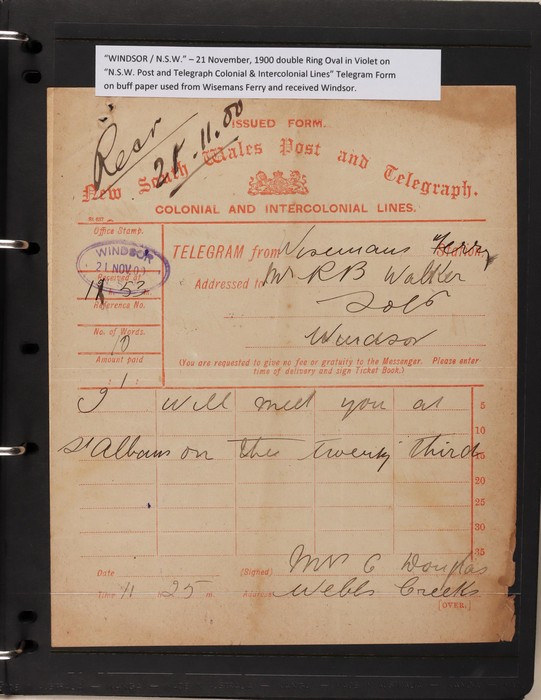 “WINDSOR / N.S.W.” – 21 November, 1900 double Ring Oval in Violet on
“N.S.W. Post and Telegraph Colonial & Intercolonial Lines” Telegram Form
on buff paper used from Wisemans Ferry and received Windsor.
ISSUED FORM.
New South Wales Post and Telegraph.
COLONIAL AND INTERCOLONIAL LINES.
Office Stamp.
WINDSOR
21 NOV 00
TELEGRAM from Wisemans Ferry Station,
Addressed to Mr R B Walker
Solr
Windsor
Received at
Reference No.
No. of Words.
10
Amount paid
1
(You are requested to give no fee or gratuity to the Messenger. Please enter
time of delivery and sign Ticket Book.)
I will meet you at
5
10
St Albans on the twenty third
15
20
25
30
35
Date
(Signed) Mrs C Douglas
Time 11 H 25 m.
Address Webbs Creek
[OVER.]